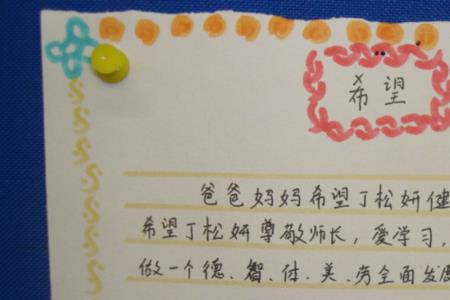 希望
爸爸妈妈希望丁松妍健
希望丁松妍尊敬师长，爱学习，
做一个德、智、体、美、劳全面发展